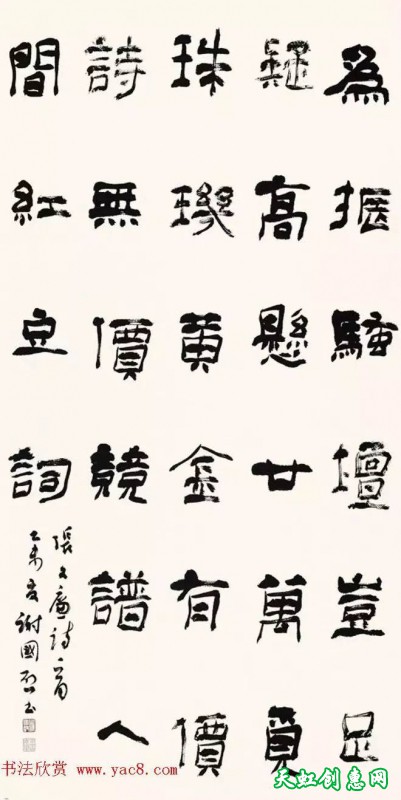 為振騷壇豈足
疑高懸廿萬覓
珠璣黃金有價
詩無價競譜人
間紅豆詞
張文廉詩一首
乙未夏謝國啟书
书法欣赏 www.yac8.com
天虹创意网